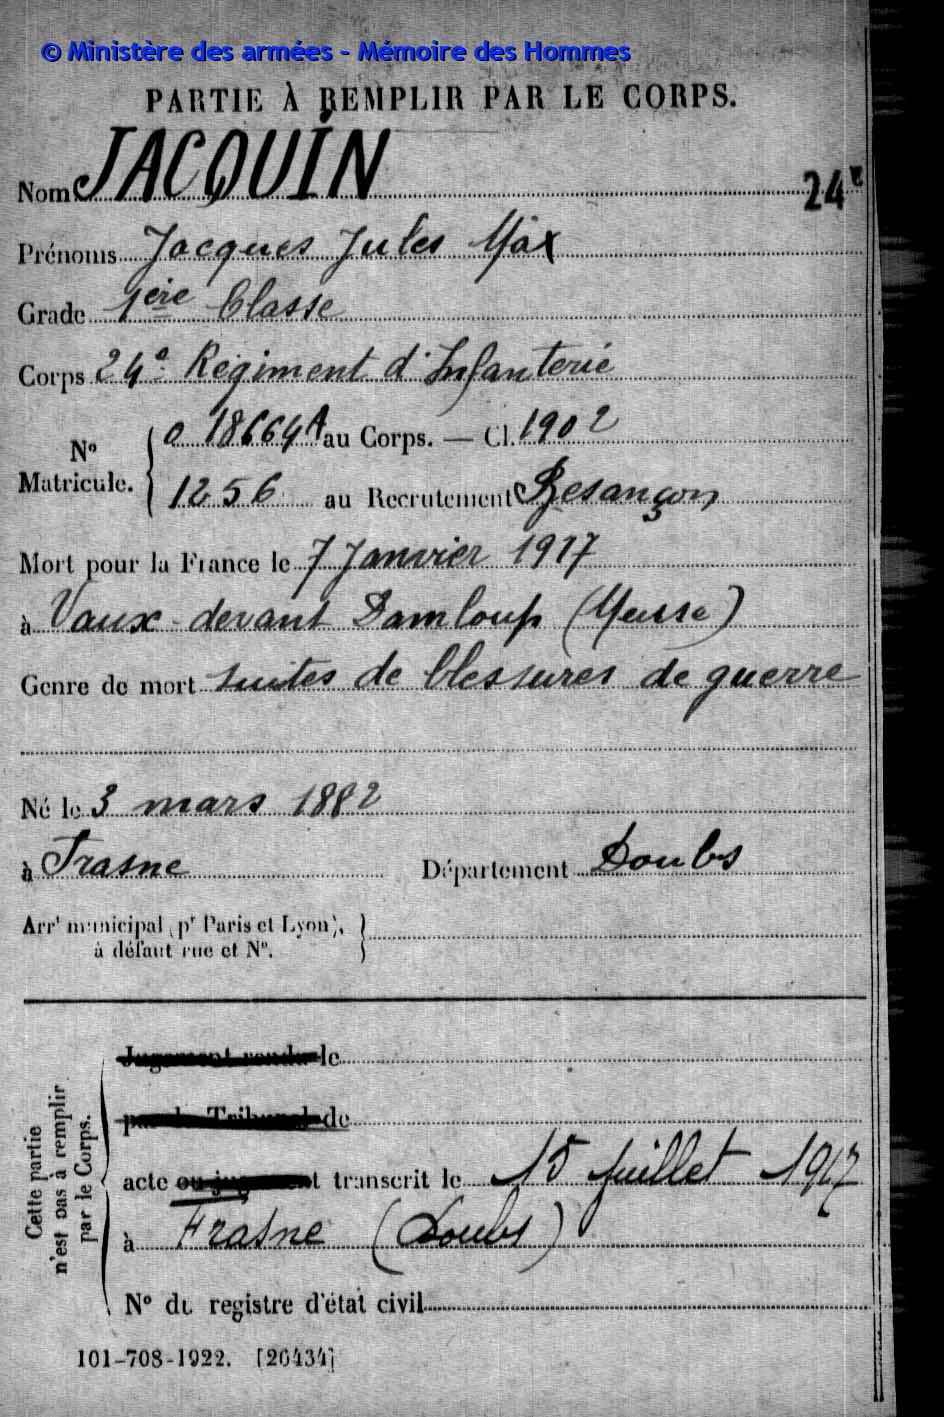 © Ministère des armées - Mémoire des Hommes
PARTIE À REMPLIR PAR LE CORPS.
Nom JACQUIN 24e
Prénoms Jacques Jules Max
Grade 1ère Classe
Corps 24e Régiment d'Infanterie
No Matricule. 0 18664A au Corps. — Cl. 1902
1256 au Recrutement Besançon
Mort pour la France le 7 Janvier 1917
à Vaux-devant Damloup (Meuse)
Genre de mort suites de blessures de guerre
Né le 3 mars 1882
à Frasne Département Doubs
Arrt municipal (pr Paris et Lyon),
à défaut rue et No.
Cette partie n'est pas à remplir par le Corps.
Jugement rendu le
par le Tribunal de
acte ou jugement transcrit le 15 juillet 1917
à Frasne (Doubs)
No du registre d'état civil
101-708-1922. [26434]